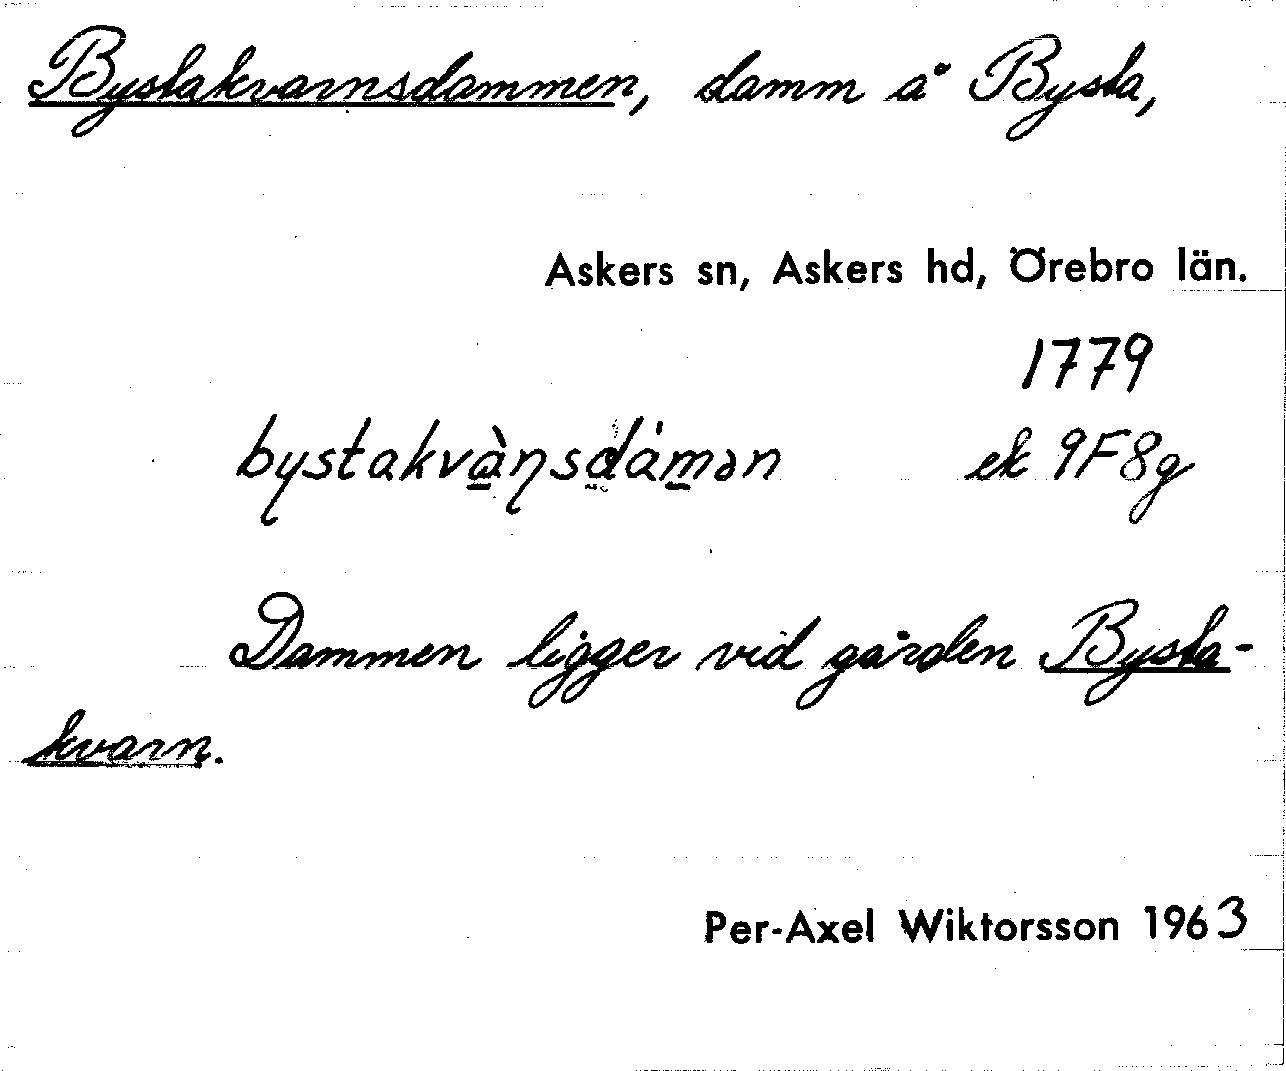 Bystakvarnsdammen, damm å Bysta,
Askers sn, Askers hd, Örebro län.
1779
bystakvà̱ɳsdám̱ən ek 9F8g
Dammen ligger vid gården Bysta-
kvarn.
Per-Axel Wiktorsson 1963